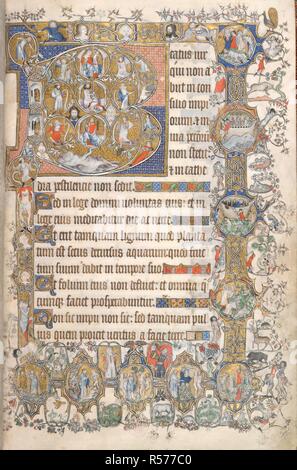 Beatus uir
qui non a
biit in con
silio impi
orum et in
non stetit
et in cathe
dra pestilencie non sedit.
Sed in lege domini uoluntas eius: et in
lege eius meditabitur die ac nocte.
Et erit tamquam lignum quod planta
tum est secus decursus aquarum: quod fruc
tum suum dabit in tempore suo
Et folium eius non defluet: et omnia
cumque faciet prosperabuntur.
Non sic impii non sic: sed tamquam pul
uis quem proicit uentus a facie terre.
alamy
R577C0